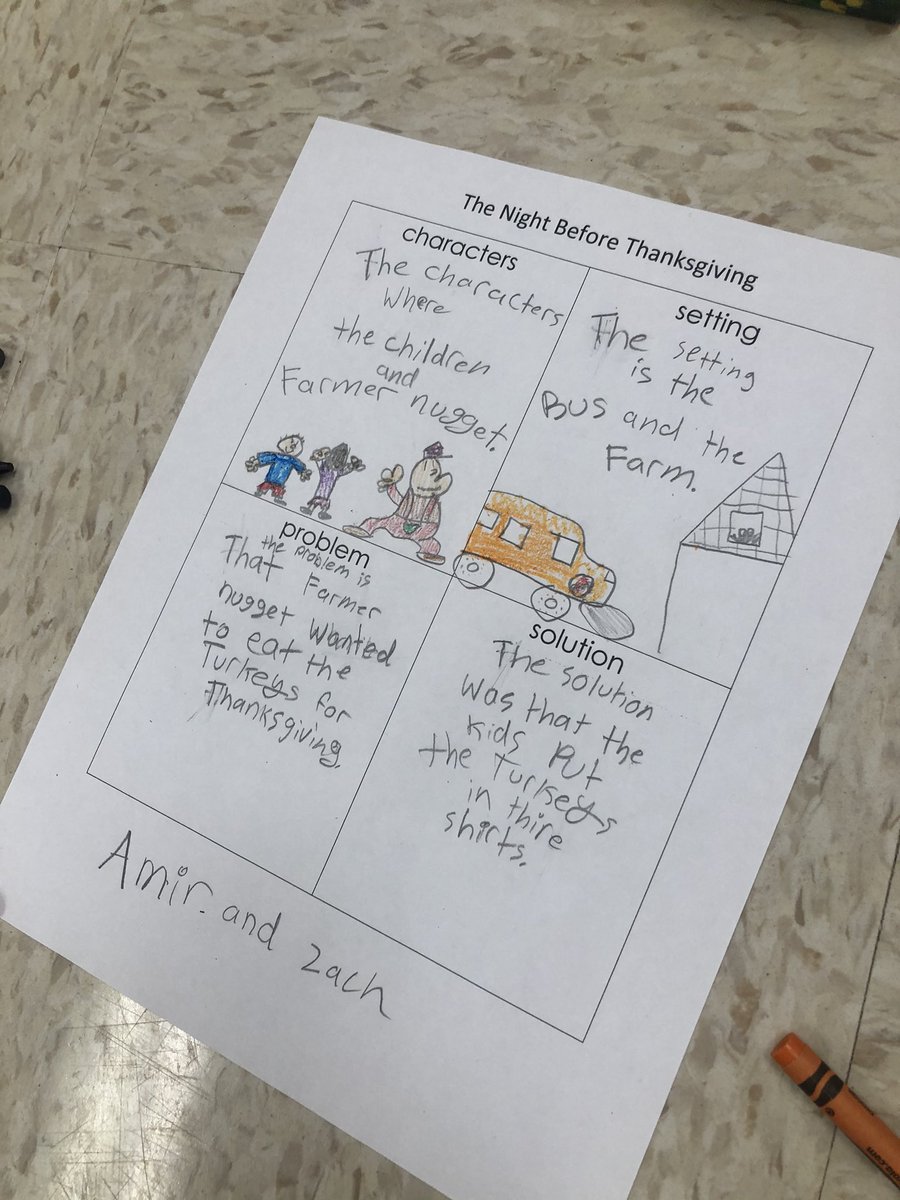 The Night Before Thanksgiving
characters
The characters
Where
the children
and
Farmer nugget.
setting
The setting
is the
Bus and the
Farm.
problem
the problem is
That Farmer
nugget wanted
to eat the
Turkeys for
Thanksgiving.
solution
The solution
was that the
kids Put
the Turkeys
in thire
shirts.
Amir. and Zach